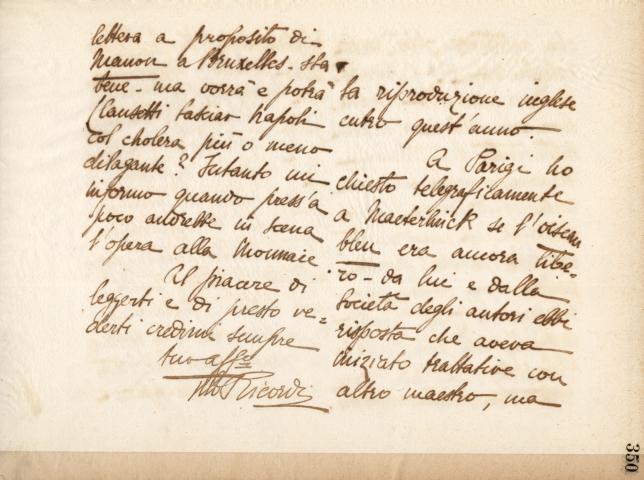 lettera a proposito di
Manon a Bruxelles - sta
bene - ma vorrà e potrà
Clausetti lasciar Napoli
col cholera più o meno
dilagante? Intanto mi
informo quando press'a
poco andrebbe in scena
l'opera alla Monnaie
Il piacere di
leggerti e di presto ve=
derti credimi sempre
tuo affo
Ricordi
la riproduzione inglese
entro quest'anno.
A Parigi ho
chiesto telegraficamente
a Maeterlinck se l'oiseau
bleu era ancora libe=
ro - da lui e dalla
Società degli autori ebbi
risposta che aveva
iniziato trattative con
altro maestro, ma
350